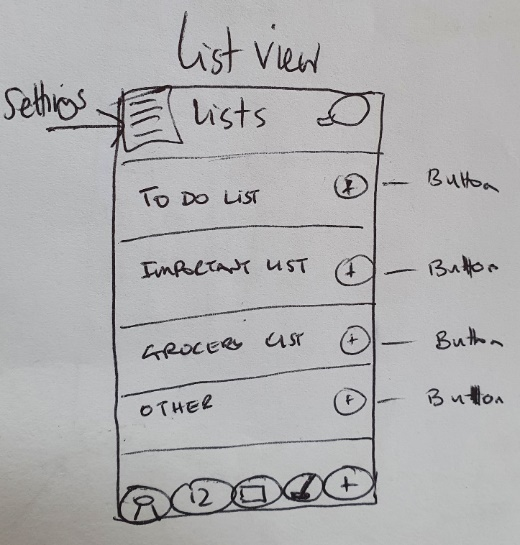 List view
Settings
Lists
TO DO LIST
Button
IMPORTANT LIST
+
Button
GROCERY LIST
+
Button
OTHER
+
Button
12
+